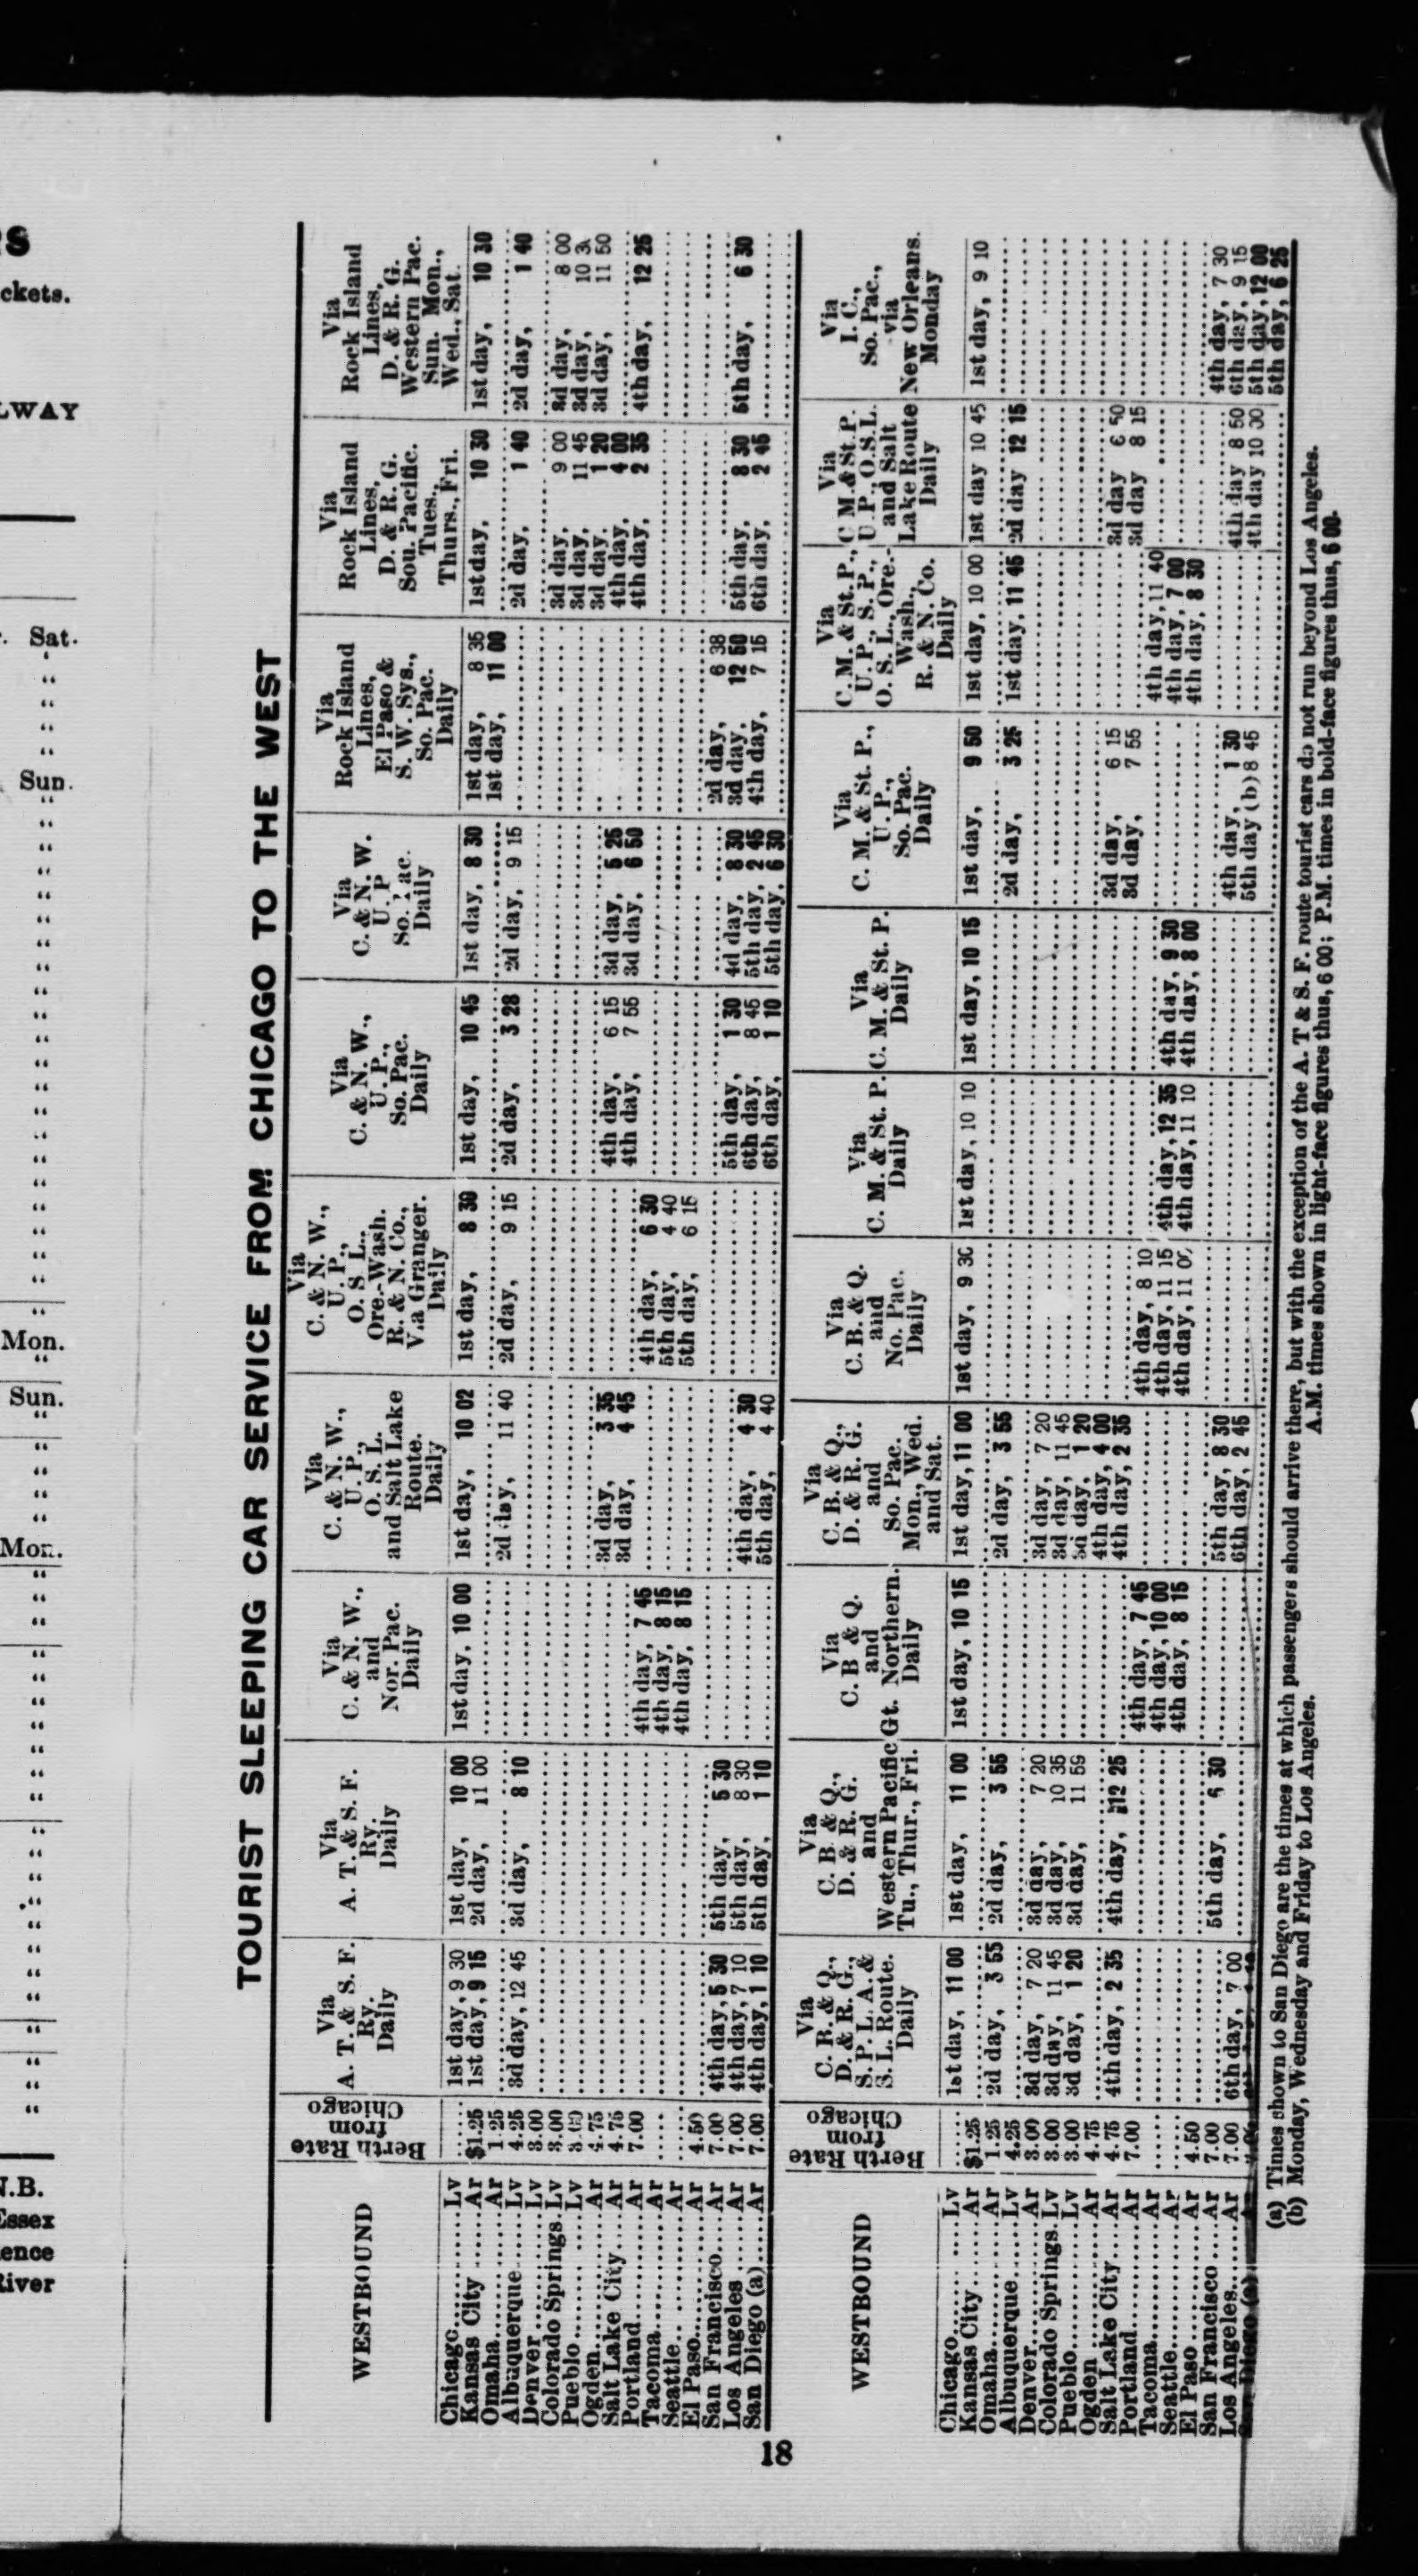 RS
ckets.
LWAY
. Sat.
Sun.
Mon.
Sun.
Mon.
N.B.
Essex
ence
River
TOURIST SLEEPING CAR SERVICE FROM CHICAGO TO THE WEST
WESTBOUND
Berth Rate from Chicago
Via A. T. & S. F. Ry. Daily
Via A. T. & S. F. Ry. Daily
Via C. & N. W., and Nor. Pac. Daily
Via C. & N. W., U. P., O. S. L. and Salt Lake Route. Daily
Via C. & N. W., U. P., O. S. L., Ore.-Wash. R. & N. Co., Via Granger. Daily
Via C. & N. W., U. P., So. Pac. Daily
Via C. & N. W. U. P. So. Pac. Daily
Via Rock Island Lines, El Paso & S. W. Sys., So. Pac. Daily
Via Rock Island Lines, D. & R. G. Sou. Pacific. Tues., Thurs., Fri.
Via Rock Island Lines, D. & R. G. Western Pac. Sun. Mon., Wed., Sat.
Chicago......Lv ..... 1st day, 9 30 1st day, 10 00 1st day, 10 00 1st day, 10 02 1st day, 8 30 1st day, 10 45 1st day, 8 30 1st day, 8 35 1st day, 10 30 1st day, 10 30
Kansas City......Ar $1.25 1st day, 9 15 2d day, 11 00 1st day, 11 00
Omaha......Ar 1.25 2d day, 11 40 2d day, 9 15 2d day, 3 28 2d day, 9 15 2d day, 1 40 2d day, 1 40
Albuquerque......Lv 4.25 3d day, 12 45 3d day, 8 10
Denver......Lv 3.00 3d day, 9 00 3d day, 8 00
Colorado Springs.Lv 3.00 3d day, 11 45 3d day,
Pueblo......Lv 3.00 3d day, 1 20 3d day, 11 50
Ogden......Ar 4.75 3d day, 3 35 4th day, 6 15 3d day, 5 25 4th day, 4 00
Salt Lake City....Ar 4.75 3d day, 4 45 4th day, 7 55 3d day, 6 50 4th day, 2 35 4th day, 12 25
Portland......Ar 7.00 4th day, 7 45 4th day, 6 30
Tacoma......Ar 4th day, 8 15 5th day, 4 40
Seattle......Ar 4th day, 8 15 5th day, 6 15
El Paso......Ar 4.50 2d day, 6 38
San Francisco....Ar 7.00 4th day, 5 30 5th day, 5 30 5th day, 1 30 4d day, 8 30 3d day, 12 50 5th day, 8 30 5th day, 6 30
Los Angeles......Ar 7.00 4th day, 7 10 5th day, 8 30 4th day, 4 30 6th day, 8 45 5th day, 2 45 4th day, 7 15 6th day, 2 45
San Diego (a)....Ar 7.00 4th day, 1 10 5th day, 1 10 5th day, 4 40 6th day, 1 10 5th day, 6 30
WESTBOUND
Berth Rate from Chicago
Via C. B. & Q., D. & R. G., S. P. L. A. & S. L. Route. Daily
Via C. B. & Q., D. & R. G. and Western Pacific Tu., Thur., Fri.
Via C. B & Q. and Gt. Northern. Daily
Via C. B. & Q., D. & R. G. and So. Pac. Mon., Wed. and Sat.
Via C. B. & Q. and No. Pac. Daily
Via C. M. & St. P. Daily
Via C. M. & St. P. Daily
Via C. M. & St. P., U. P., So. Pac. Daily
Via C. M. & St. P., U. P., S. P., O. S. L., Ore.-Wash., R. & N. Co. Daily
Via C M. & St. P. U P., O.S.L. and Salt Lake Route Daily
Via I. C., So. Pac., via New Orleans. Monday
Chicago......Lv ..... 1st day, 11 00 1st day, 11 00 1st day, 10 15 1st day, 11 00 1st day, 9 30 1st day, 10 10 1st day, 10 15 1st day, 9 50 1st day, 10 00 1st day 10 45 1st day, 9 10
Kansas City......Ar $1.25
Omaha......Ar 1.25 2d day, 3 55 2d day, 3 55 2d day, 3 55 2d day, 3 25 1st day, 11 45 2d day 12 15
Albuquerque......Lv 4.25
Denver......Ar 3.00 3d day, 7 20 3d day, 7 20 3d day, 7 20
Colorado Springs Lv 3.00 3d day, 11 45 3d day, 10 35 3d day, 11 45
Pueblo......Lv 3.00 3d day, 1 20 3d day, 11 59 3d day, 1 20
Ogden......Ar 4.75 4th day, 4 00
Salt Lake City....Ar 4.75 4th day, 2 35 4th day, 12 25 4th day, 2 35 3d day, 6 15 3d day 6 50
Portland......Ar 7.00 4th day, 7 45 4th day, 8 10 3d day, 7 55 4th day, 11 40 3d day 8 15
Tacoma......Ar 4th day, 10 00 4th day, 11 15 4th day, 12 35 4th day, 9 30 4th day, 7 00
Seattle......Ar 4th day, 8 15 4th day, 11 00 4th day, 11 10 4th day, 8 00 4th day, 8 30
El Paso......Ar 4.50 4th day, 7 30
San Francisco....Ar 7.00 5th day, 6 30 5th day, 8 30 4th day, 1 30 6th day, 9 15
Los Angeles......Ar 7.00 6th day, 7 00 6th day, 2 45 5th day (b) 8 45 4th day 8 50 5th day, 12 00
San Diego (a) 4th day 10 00 5th day, 6 25
(a) Times shown to San Diego are the times at which passengers should arrive there, but with the exception of the A. T & S. F. route tourist cars do not run beyond Los Angeles.
(b) Monday, Wednesday and Friday to Los Angeles. A.M. times shown in light-face figures thus, 6 00; P.M. times in bold-face figures thus, 6 00.
18